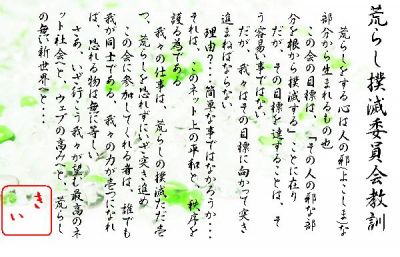 荒らし撲滅委員会教訓
荒らしをする心は人の邪(よこしま)な
部分から生まれるもの也
この会の目標は、「その人の邪な部
分を根から撲滅する」ことに在り
だが、その目標を達することは、そ
う容易い事ではない
だが、我々はその目標に向かって突き
進まねばならない
理由?・・・簡単な事ではなかろうか・・・
それは、このネット上の平和と、秩序を
護る為である
我々の仕事は、荒らしの撲滅ただ壱
つ、荒らしを恐れずにいざ突き進め
この会に参加してくれる者は、誰でも
我が同士である、我々の力が壱つになれ
ば、恐れる物は無に等しい
さあ、いざ行こう我々が望む最高のネ
ット社会へと、ウェブの高みへと、荒らし
の無い新世界へと・・・
きい